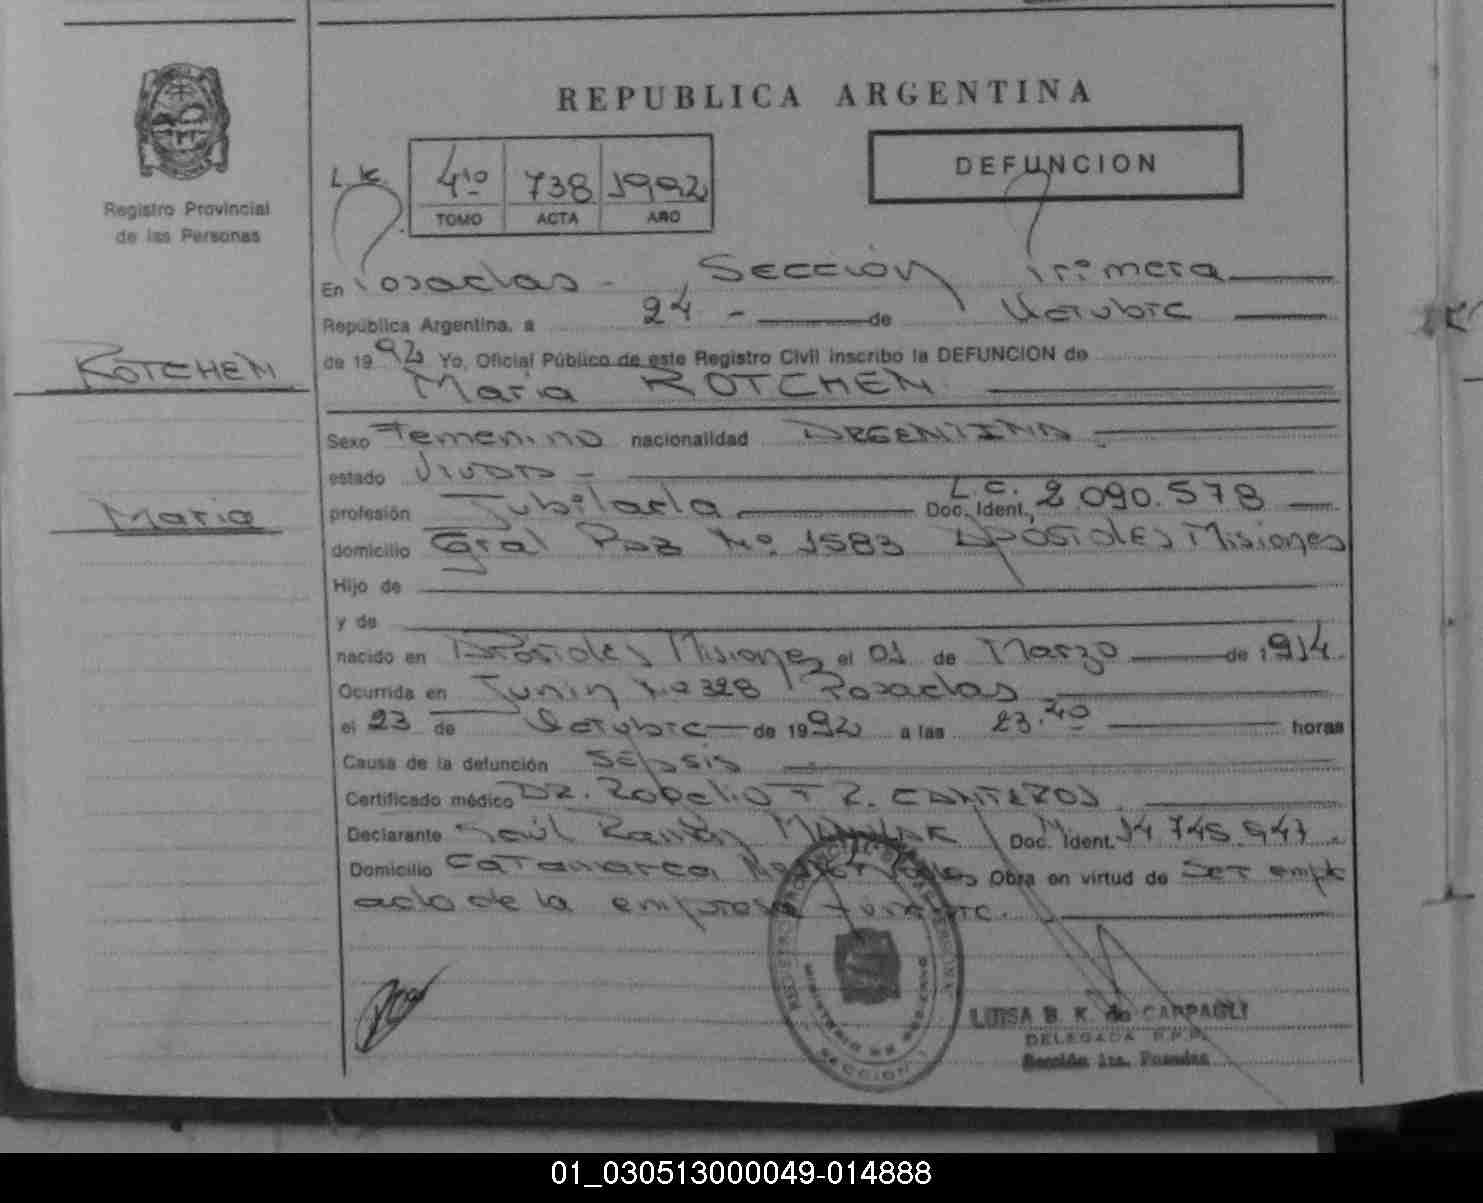 REPUBLICA ARGENTINA
Registro Provincial
de las Personas
L.K.
4to 738 1992
TOMO ACTA AÑO
DEFUNCION
En Posadas - Sección Primera
República Argentina, a 24 - de Octubre
de 1992 Yo, Oficial Público de este Registro Civil inscribo la DEFUNCION de
ROTCHEN
María ROTCHEN
Sexo Femenino nacionalidad ARGENTINA
estado Viuda -
María
profesión Jubilada Doc. Ident. L.C. 2.090.578
domicilio Gral Paz Nº 1583 Apóstoles Misiones
Hijo de
y de
nacido en Apóstoles Misiones el 01 de Marzo de 1914
Ocurrida en Junín Nº 328 Posadas
el 23 de Octubre de 1992 a las 23.40 horas
Causa de la defunción Sepsis
Certificado médico DR. Rogelio R. CANTEROS
Declarante Saúl Ramón Doc. Ident. M 14.745.947
Domicilio Catamarca Obra en virtud de Ser emple
ado de la empresa fúnebre.
REGISTRO PROVINCIAL DE LAS PERSONAS
MINISTERIO DE GOBIERNO
SECCION 1
LUISA B. K. de CAPPAGLI
DELEGADA R.P.P.
Sección 1ra. Posadas
01_030513000049-014888